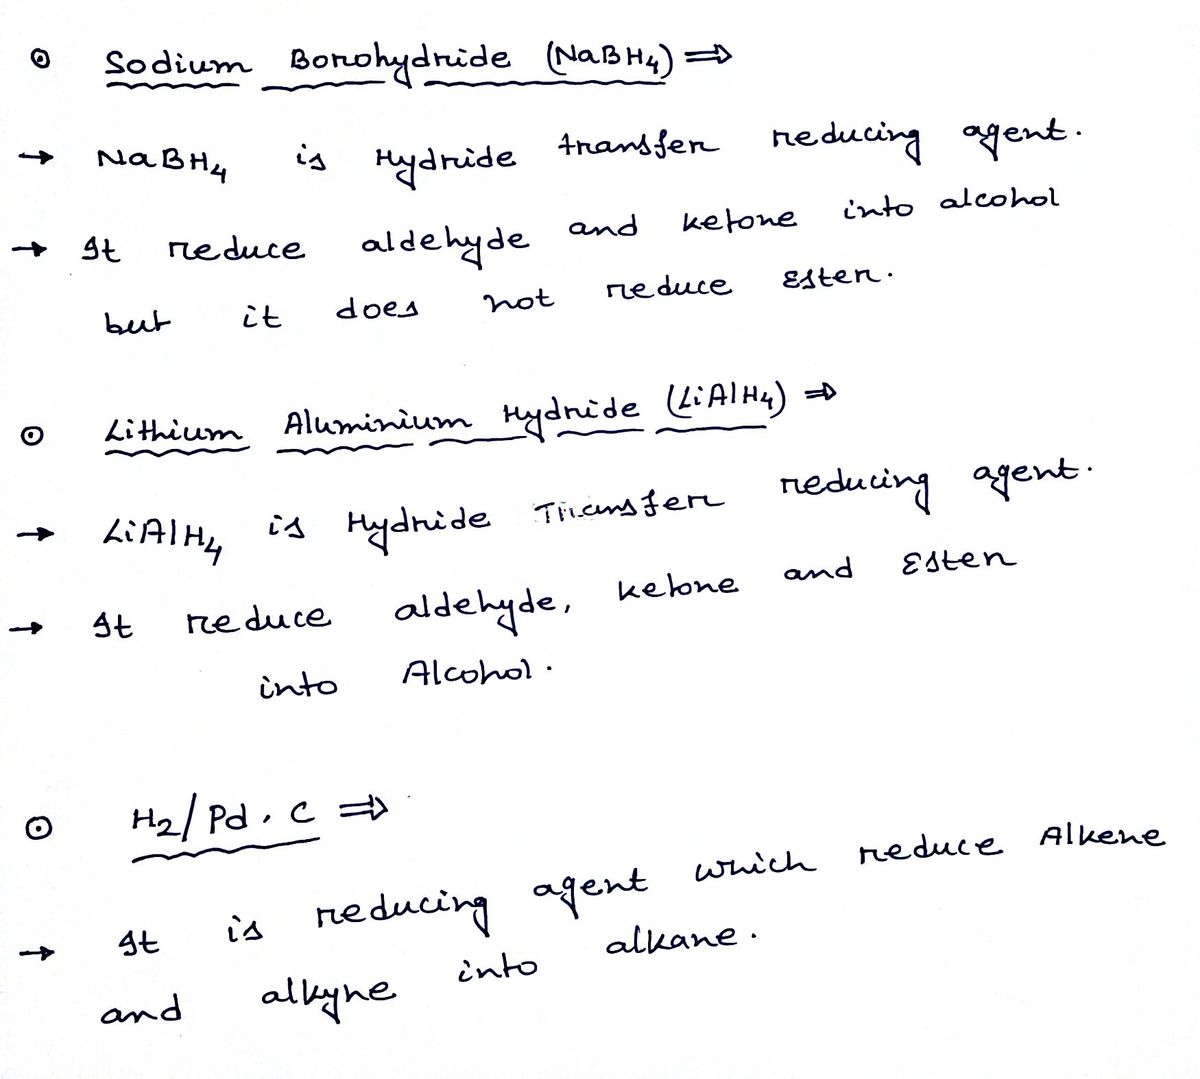 ⊙ Sodium Borohydride (NaBH4) ⇒
→ NaBH4 is Hydride transfer reducing agent.
→ It reduce aldehyde and ketone into alcohol
but it does not reduce Ester.
⊙ Lithium Aluminium Hydride (LiAlH4) ⇒
→ LiAlH4 is Hydride Transfer reducing agent.
→ It reduce aldehyde, ketone and Ester
into Alcohol.
⊙ H2/Pd, C ⇒
→ It is reducing agent which reduce Alkene
and alkyne into alkane.